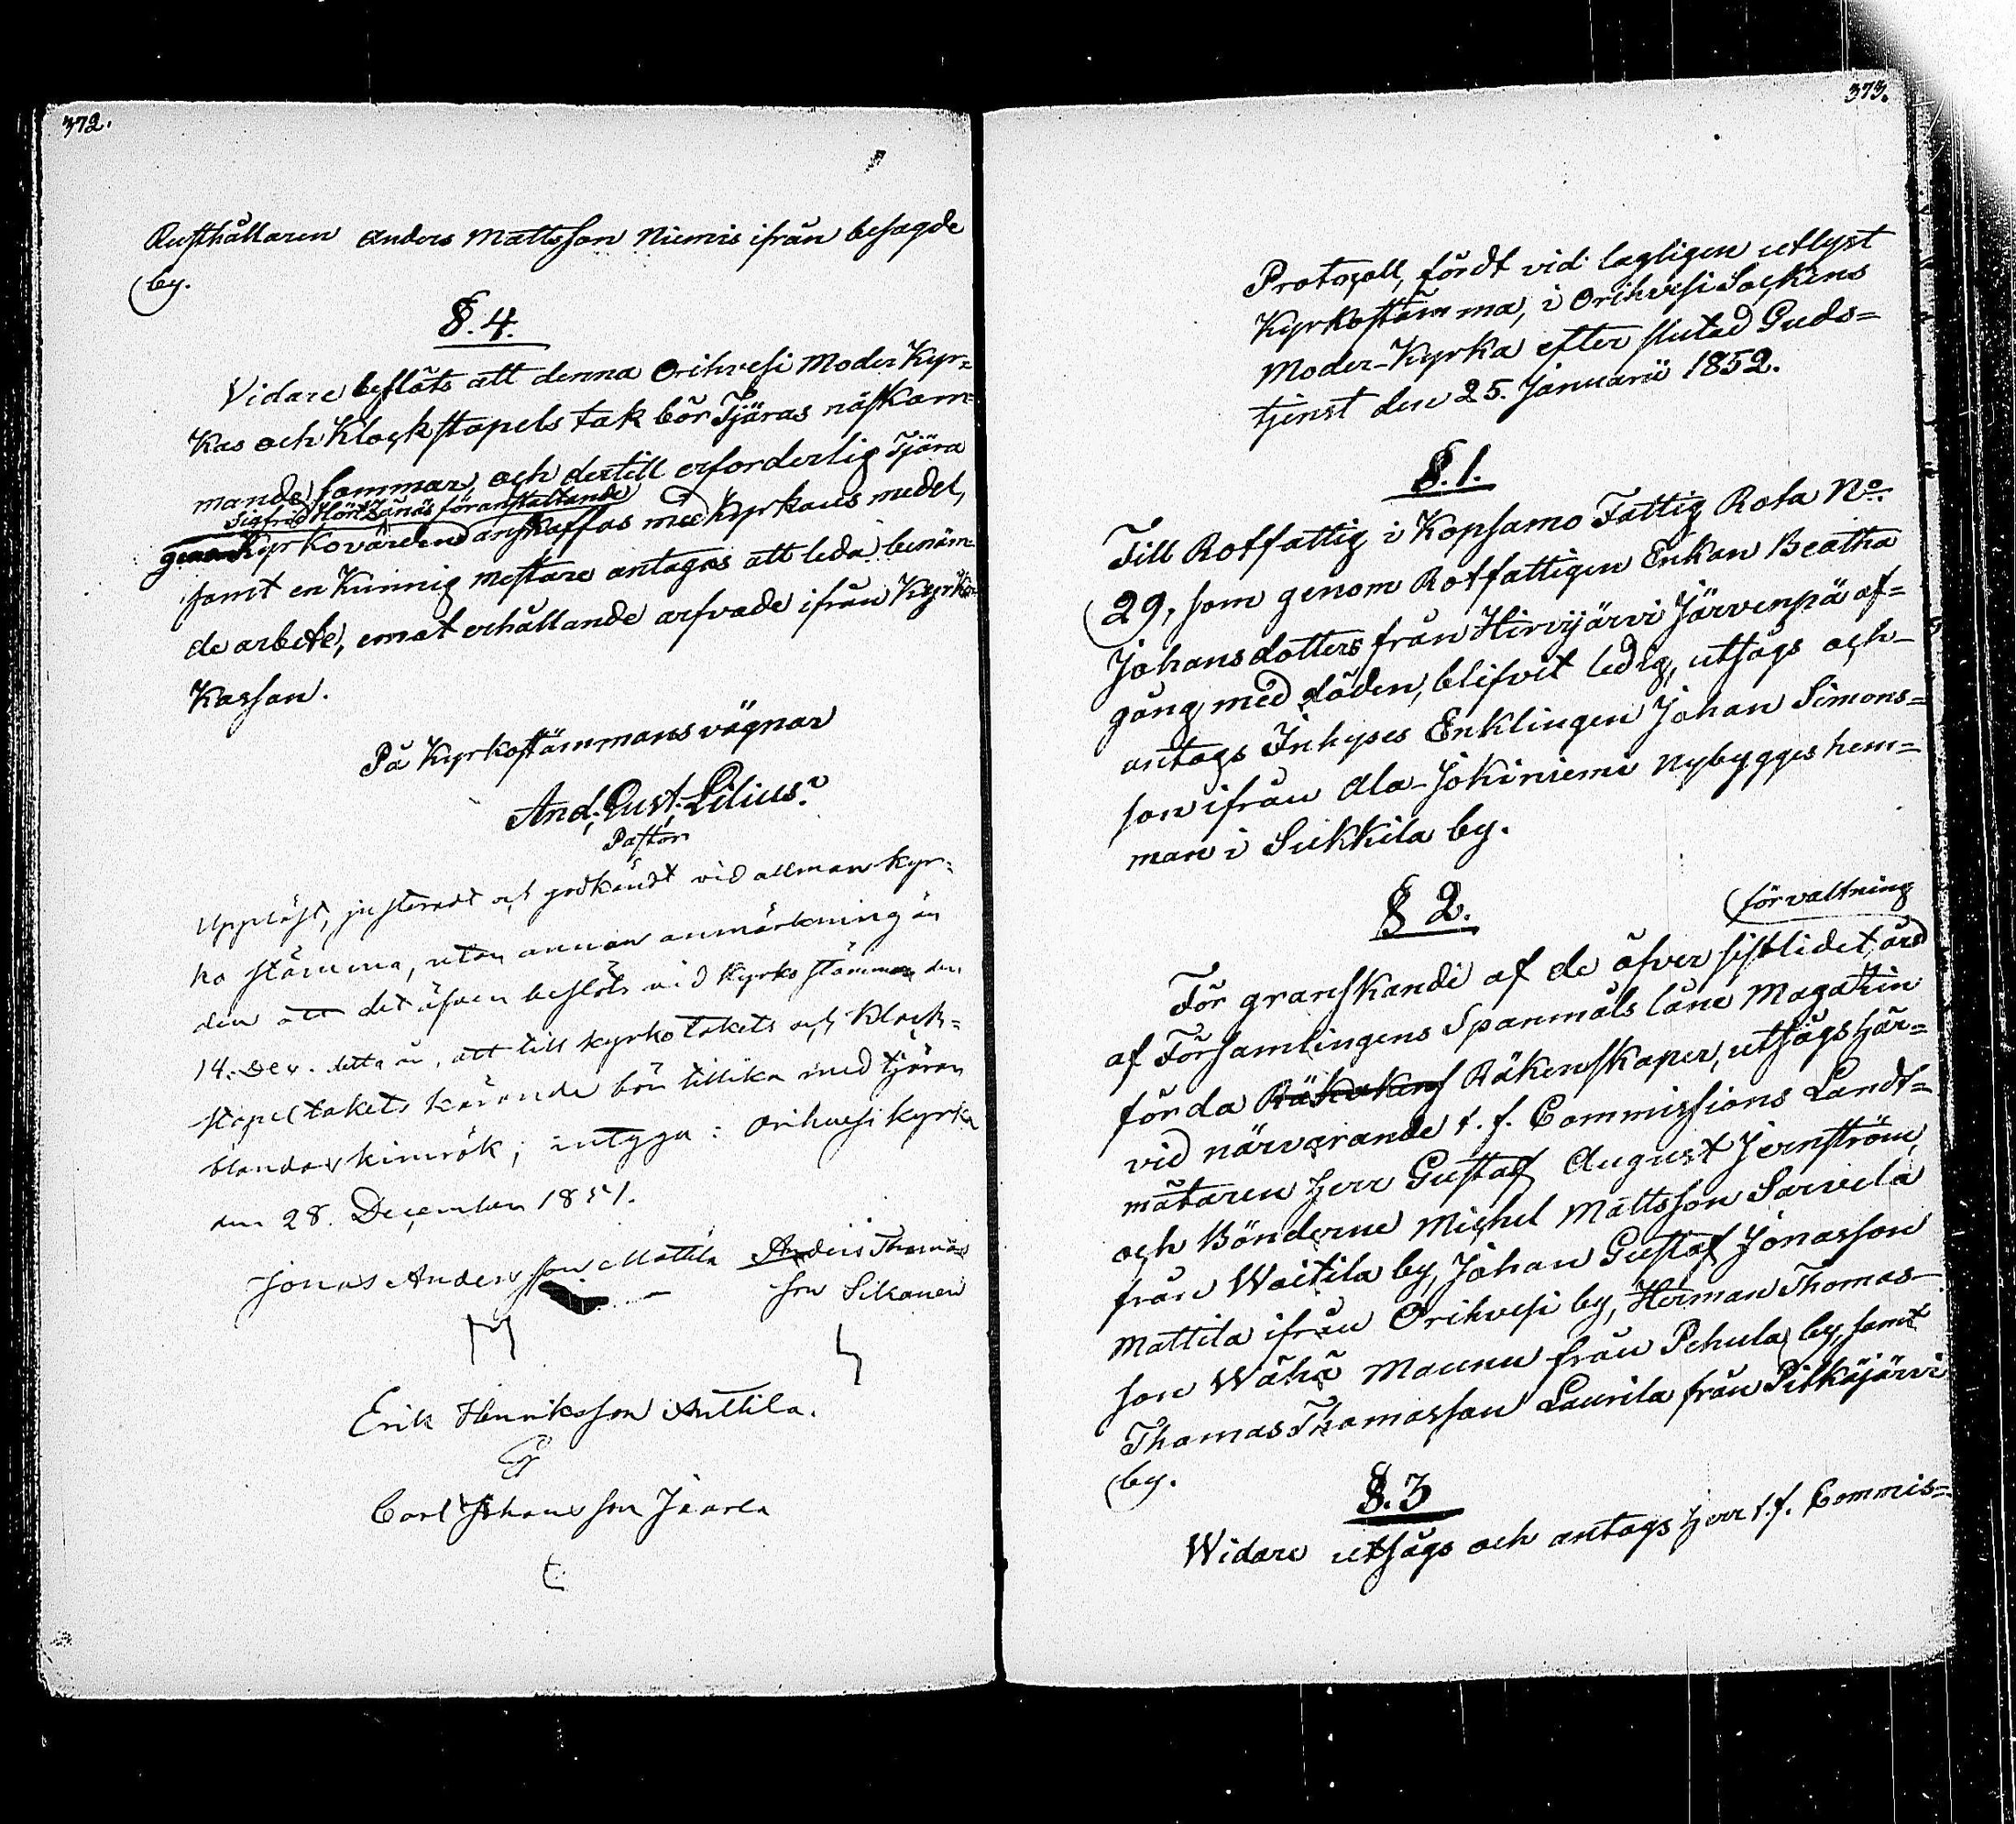 372.
Rusthållaren Anders Mattsson Niemis ifrån besagde
by.
§. 4.
Vidare beslöts att denna Orihvesi Moder Kyr=
kas och Klockstapels tak bör Tjäras nästkom=
mande sommar, och dertill erforderlig Tjära
Sigfrid föranstaltande
genom Kyrkovärden anskaffas med Kyrkans medel,
samt en kunnig mestare antagas att leda benäm=
de arbete, emot erhållande arfvode ifrån Kyrko
Kassan.
På Kyrkostämmans vägnar
And. Gust. Lilius.
Pastor
Uppläst, justeradt och godkändt vid allmän kyr=
ko stämma, utan annan anmärkning än
den att det äfven beslöts vid Kyrkostämman den
14. Dec. detta år, att till kyrkotakets och Klock=
stapeltakets bör tillika med tjäran
blandas kimrök; intyga: Orihvesi kyrka
den 28. December 1851.
Jonas Andersson Mattila Anders Thomas
son Sikanen
Erik Henriksson Anttila.
Carl Johansson Jaarla
373.
Protocoll, fördt vid lagligen utlyst
Kyrkostämma, i Orihvesi Sockens
Moder-Kyrka efter slutad Guds=
tjenst den 25. Januarii 1852.
§. 1.
Till Rotfattig i Kopsamo Fattig Rota No.
29, som genom Rotfattigen Enkan Beatha
Johansdotters från Hirvijärvi Järvenpä af=
gång med döden, blifvit ledig, utsågs och
antogs Inhyses Enklingen Johan Simons=
son ifrån Ala-Jokiniemi Nybygges hem=
man i Sukkila by.
§ 2.
förvaltning
För granskande af de öfver sistlidet års
af Församlingens Spanmåls låne Magatin
förda Räkenskaper, utsågs här=
vid närvarande t. f. Commissions Landt=
mätaren Herr Gustaf August Jernström,
och Bönderne Michel Mattsson Sarvela
från Waitila by, Johan Gustaf Jonasson
Mattila ifrån Orihvesi by, Herman Thomas=
son Wähä Maunu från Pehula by, samt
Thomas Thomasson Laurila från Pitkäjärvi
by.
§. 3
Widare utsågs och antogs Herr t. f. Commis=